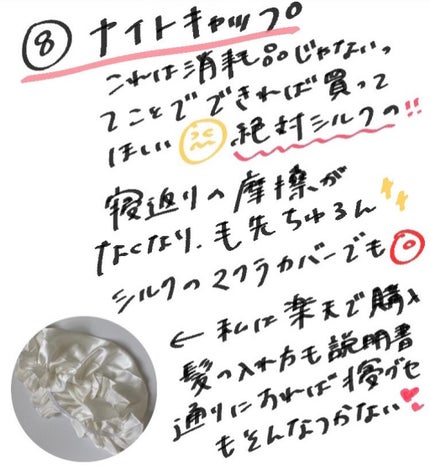 ⑧ ナイトキャップ。
これは消耗品じゃないっ
てことでできれば買って
ほしい 絶対シルクの!!
寝返りの摩擦が
なくなり、毛先ちゅるん
シルクのマクラカバーでも◎
← 私は楽天で購入
髪の入れ方も説明書
通りにすれば寝グセ
もそんなつかない